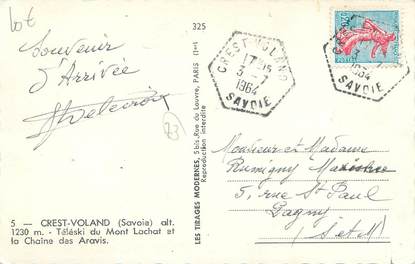 Lot
325
Souvenir
d'Arrivée
CREST-VOLAND
17H15
3-7
1964
SAVOIE
CREST
1964
SAVOIE
0,20
Monsieur et Madame
Rumigny
5, rue St Paul
Lagny
S et M
LES TIRAGES MODERNES, 5 bis, Rue du Louvre, PARIS (1er)
Reproduction interdite
5 — CREST-VOLAND (Savoie) alt.
1230 m. - Téléski du Mont Lachat et
la Chaîne des Aravis.